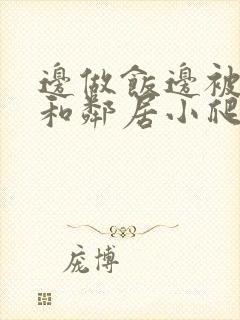 邊做飯邊被
和鄰居小爬
庞博